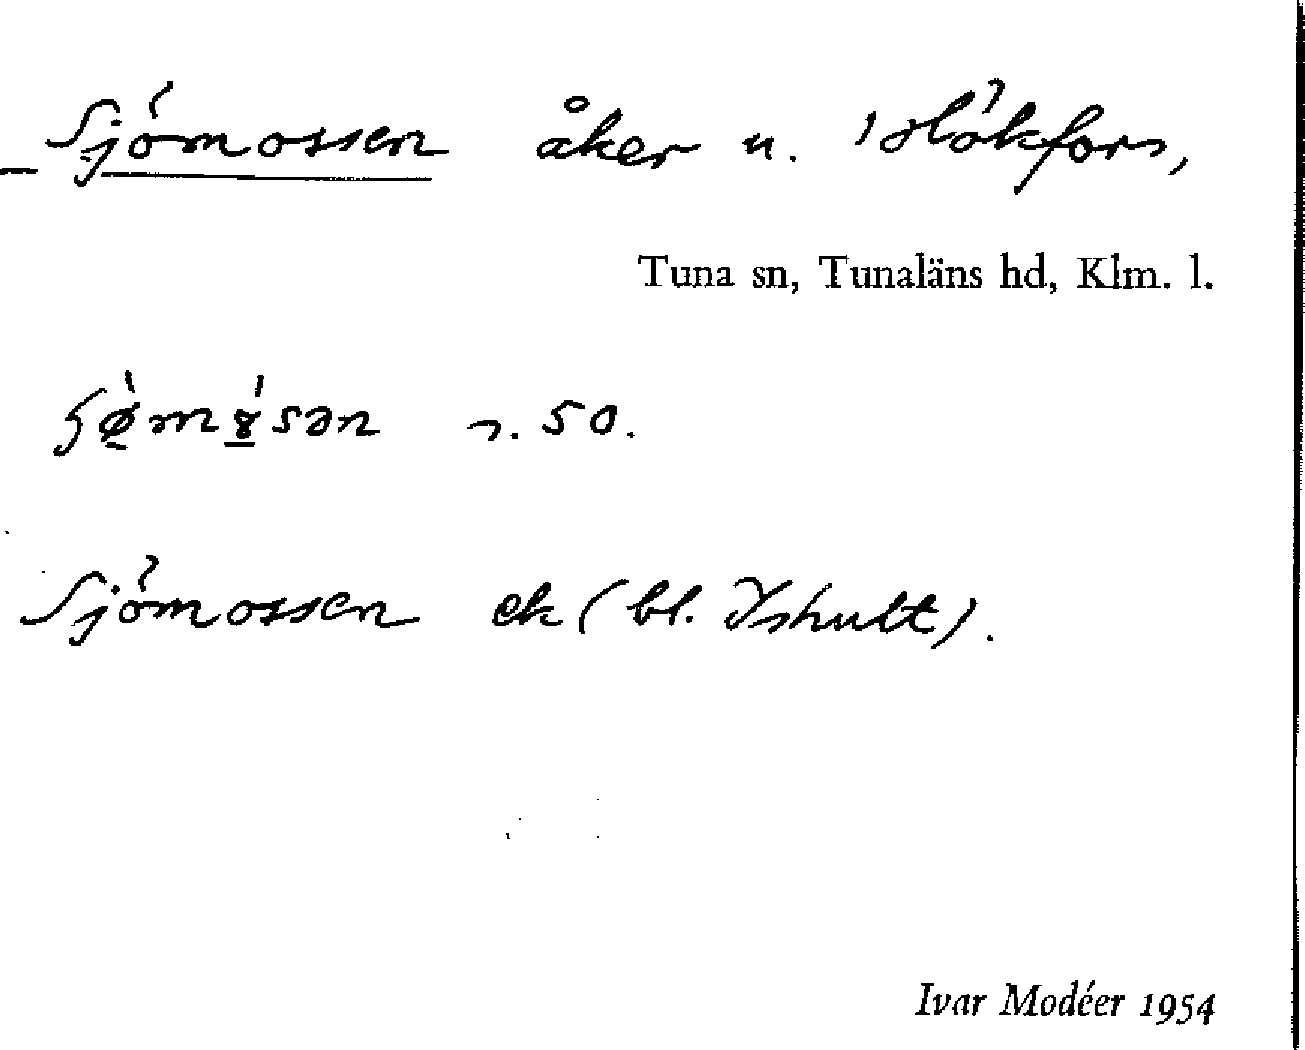 Sjömossen åker u. Hökfors,
Tuna sn, Tunaläns hd, Klm. l.
50.
Sjömossen ek (bl. Ishult).
Ivar Modéer 1954